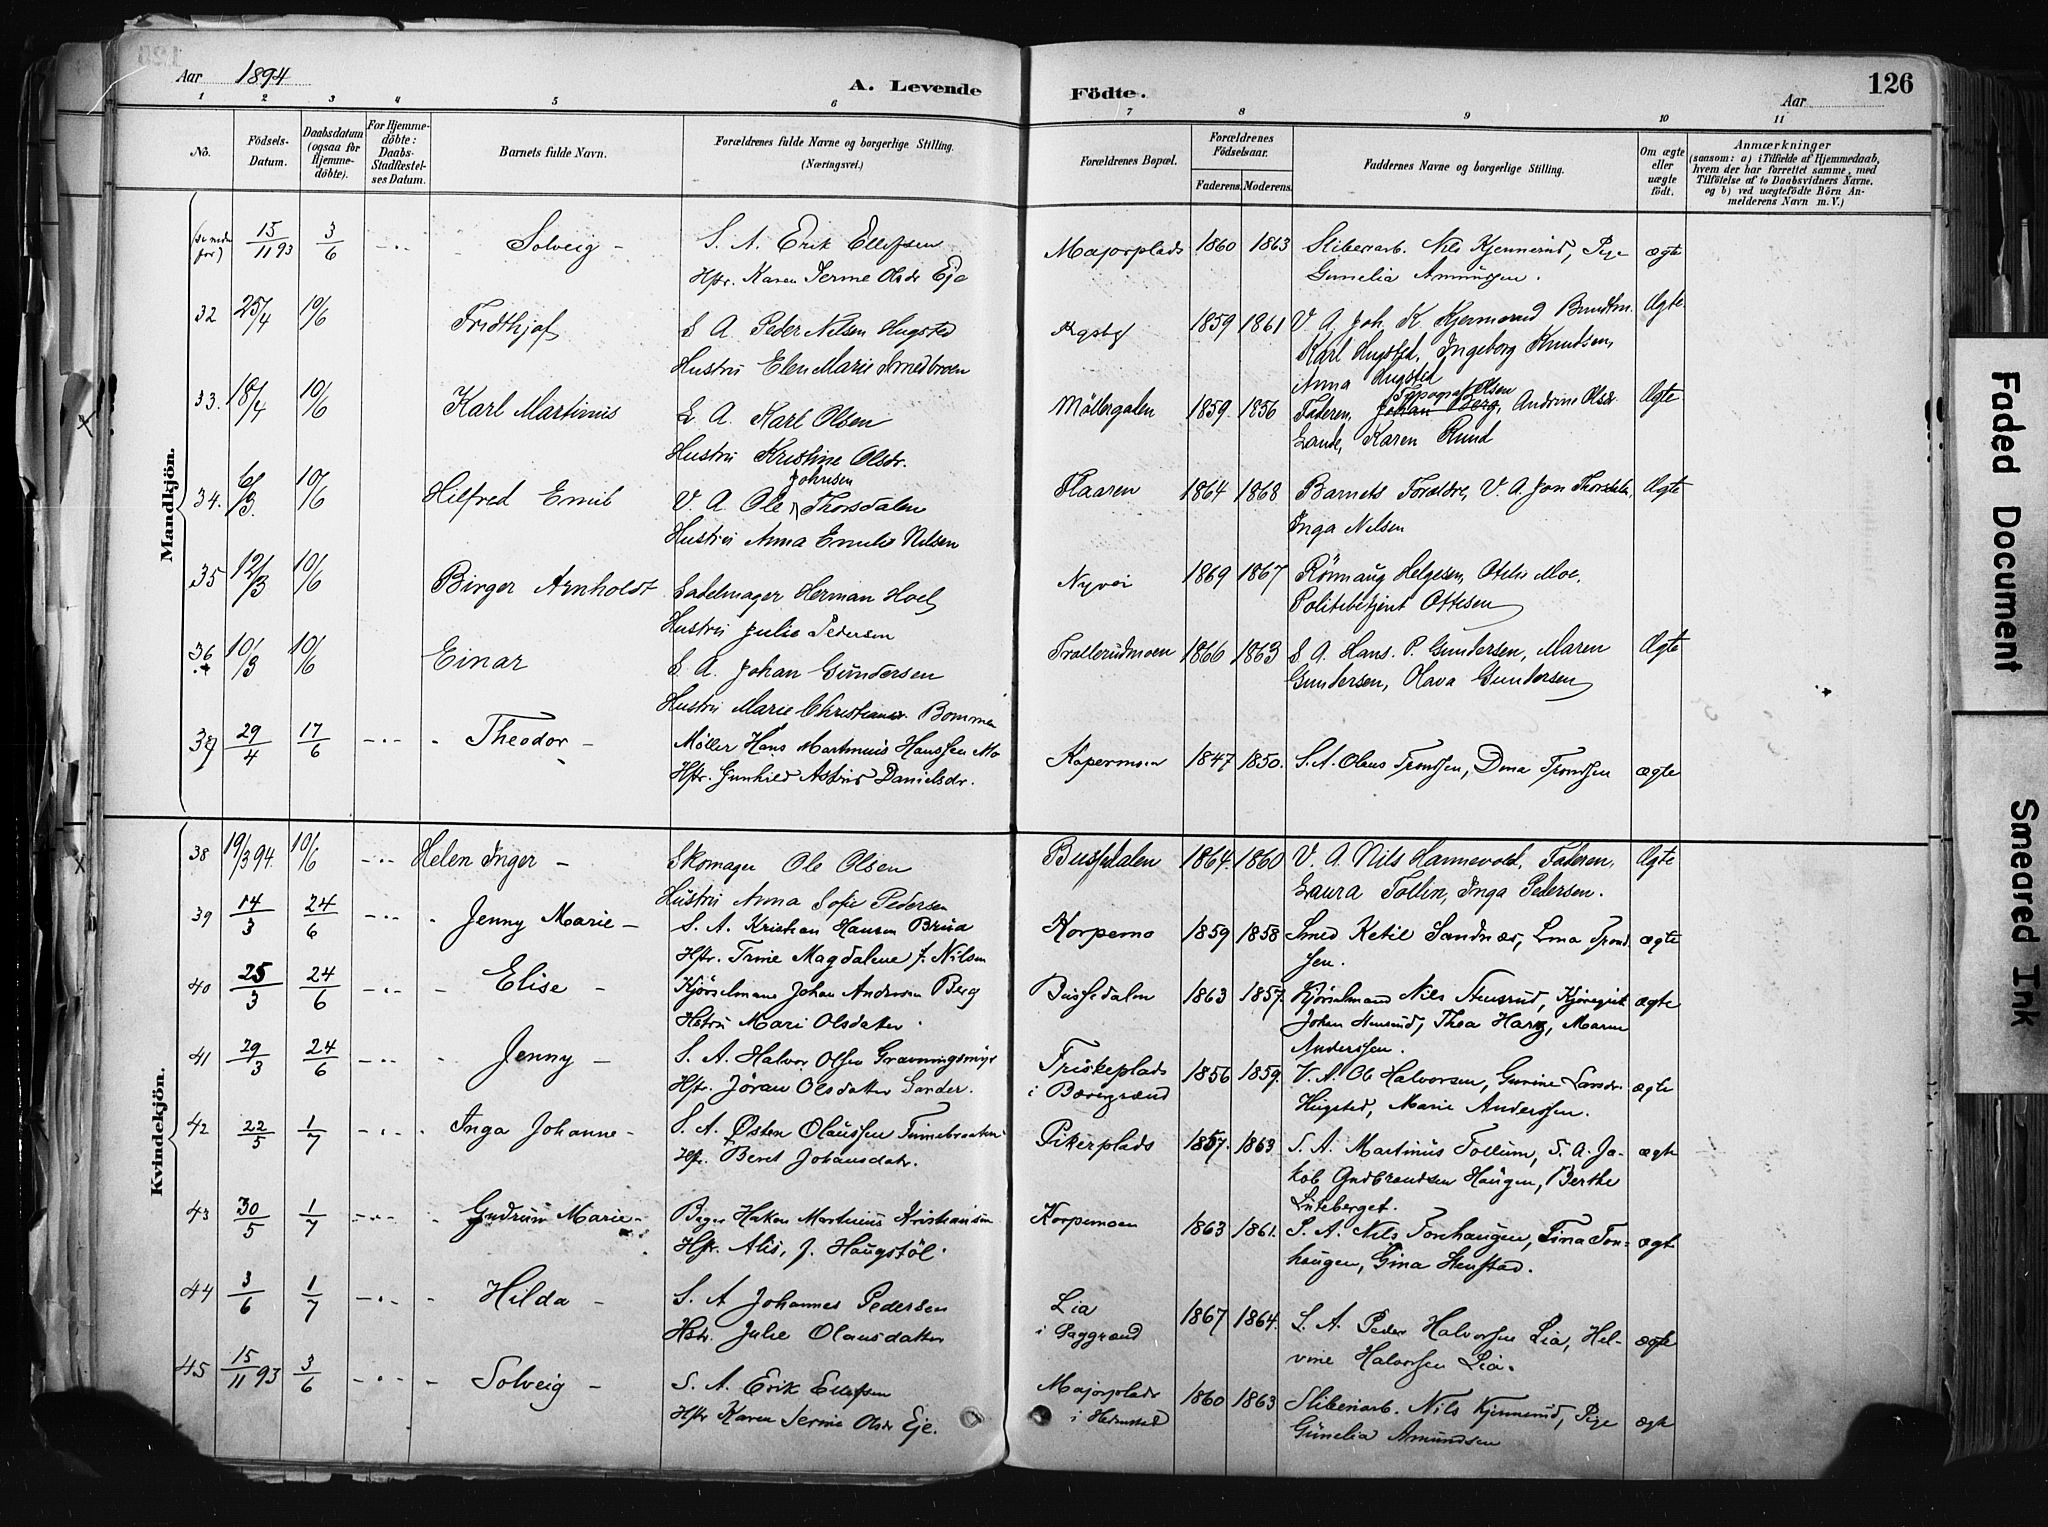 Aar 1894
A. Levende Födte.
Aar
126
1 2 3 4 5 6 7 8 9 10 11
No.
Födsels-Datum.
Daabsdatum (ogsaa for Hjemme-döbte).
For Hjemme-döbte: Daabs-Stadfæstel-ses Datum.
Barnets fulde Navn.
Forældrenes fulde Navne og borgerlige Stilling. (Næringsvei.)
Forældrenes Bopæl.
Forældrenes Födselsaar.
Faderens. Moderens.
Faddernes Navne og borgerlige Stilling.
Om ægte eller uægte födt.
Anmærkninger
(saasom: a) i Tilfælde af Hjemmedaab, hvem der har forrettet samme, med Tilföielse af to Daabsvidners Navne. og b) ved uægtefödte Börn An-melderens Navn m. V.)
Mandkjön.
(se neden for) 15/11 93 3/6 Solveig S. A. Erik Ellefsen Majorplads 1860 1863 Sliberiarb. Nils Kjennerud, Pige ægte
Hstr. Karen Jerine Olsdr Eje Gunelia Amundsen.
32 25/4 10/6 Fridthjof S A Peder Nilsen Hugsted 1859 1861 V. A. Joh. K. Kjennerud Ægte
Hustru Elen Marie Karl Hugsted, Ingeborg Knudsen,
Anna Hugsted
33. 18/4 10/6 Karl Martinus S. A. Karl Olsen Möllegaten 1859. 1856 Faderen, Typograf Olsen Johan Berg, Andrine Olsdr. Ægte
Hustru Kristine Olsdr. Lande, Karen Rund
34. 6/3. 10/6 Hilfred Emil V. A. Ole Johnsen Thorsdalen Flaaren 1864 1868 Barnets Forældre, V. A. Jon Thorsdalen, Ægte
Hustru Anna Emilie Nilsen Inga Nelsen
35 12/3 10/6 Birger Arnholdt Sadelmager Herman Hoel Nyvei 1869 1867 Rönnaug Helgesen, Otilie Moe,
Hustru Julie Pedersen Politibetjent Ottesen
36 10/3 10/6 Einar S A. Johan Gundersen Trollerudmoen 1866 1863 S A. Hans. P. Gundersen, Maren Ægte
Hustru Marie Christiansdr. Bommen Gundersen, Olava Gundersen
37 29/4 17/6 Theodor Møller Hans Martinius Hanssen Mo Kopermoen 1847 1850. S. A. Olaus Trondsen, Dina Trondsen ægte
Hstr. Gunhild Astrid Danielsdr.
Kvindekjön.
38 19/3 94 10/6 Helen Inger Skomager Ole Olsen Bussedalen 1864. 1860 V. A. Nils Hannevold, Faderen, Ægte
Hustru Anna Sofie Pedersen Laura Tollin, Inga Pedersen.
39 14/3 24/6 Jenny Marie S. A. Kristian Hansen Brua Korpemo 1859 1858 Smed Ketil Sandnæs, Lina Trond- ægte
Hstr. Trine Magdalene J. Nilsen sen.
40 25/3 24/6 Elise Kjörselmand Johan Andersen Berg Bussedalen 1863 1857. Kjörselmand Nils Stensrud, ægte
Hstru Mari Olsdatter Johan Stensrud, Thea Harg, Maren
Anderssen.
41 29/3 24/6 Jenny S. A. Halvor Olsen Gravningsmyr Friskeplads 1856 1859. V. A. Ole Halvorsen, Gurine Larsdr. ægte
Hstr. Jöran Olsdatter Sander. i Bævergrænd Hugsted, Marie Anderssen.
42 22/5 1/7 Inga Johanne S. A. Østen Olaussen Tinnebraaten Pikerplads 1857. 1863 S. A. Martinus Tollum, S. A. Ja- ægte
Hstr. Beret Johansdatr. kob Gudbrandsen Haugen, Berthe
Luteberget.
43 30/5 1/7 Gudrun Marie Bager Hakon Martinius Kristiansen Korpemoen 1863 1861. S. A. Nils Tonhaugen, Tina Ton- ægte
Hstr. Alis, J. Haugstöl haugen, Gina Henstad.
44 3/6 1/7 Hilda S. A Johannes Pedersen Lia 1867 1864. S. A. Peder Halvorsen Lia, Hel- ægte
Hstr. Julie Olausdatter vine Halvorsen Lia.
45 15/11 93 3/6 Solveig S. A. Erik Ellefsen Majorplads 1860 1863 Sliberiarb. Nils Kjennerud, Pige ægte
Hstr Karen Jerine Olsdr Eje. i Gunelia Amundsen
Faded Document
Smeared Ink